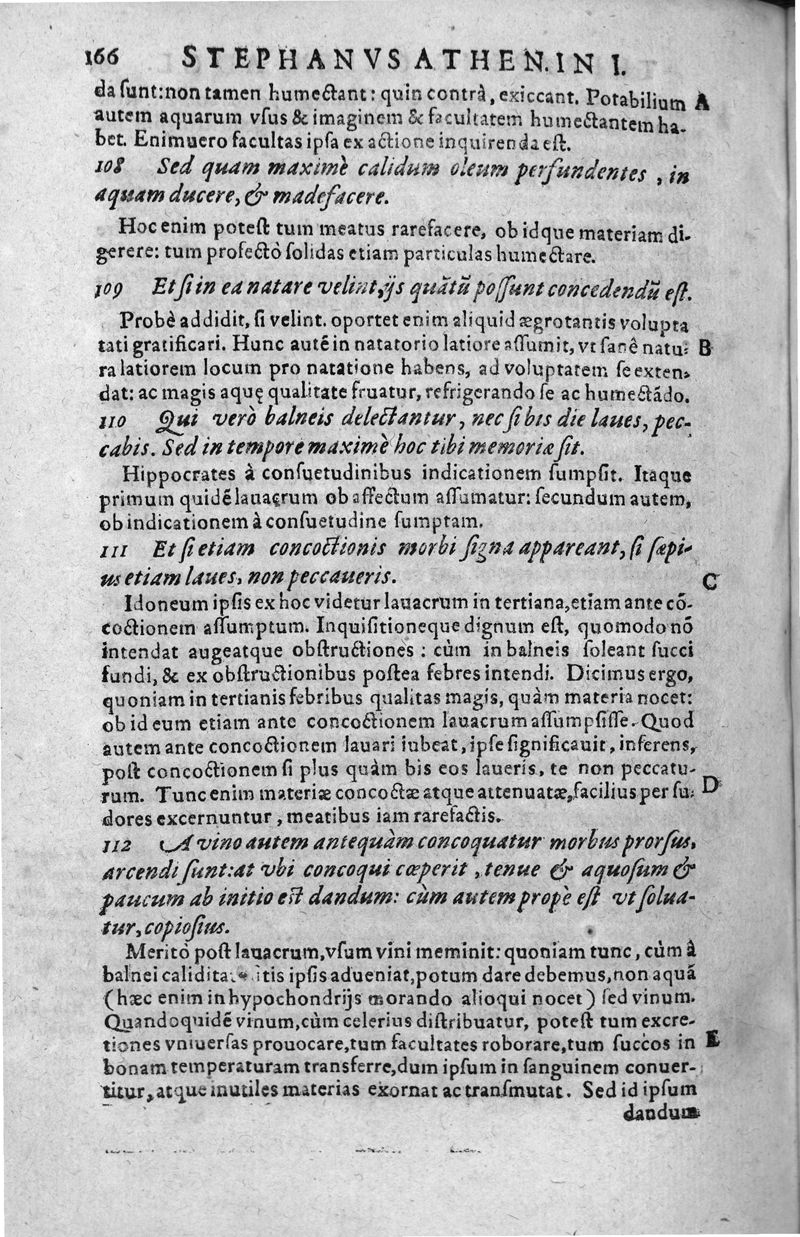 166 STEPHANVS ATHEN. IN I.
da ſunt: non tamen humectant: quin contrà, exiccant. Potabilium A
autem aquarum vſus & imaginem & facultatem humectantem ha-
bet. Enimuero facultas ipſa ex actione inquirenda eſt.
108 Sed quam maximè calidum oleum perfundentes, in
aquam ducere, & madefacere.
Hoc enim poteſt tum meatus rarefacere, ob idque materiam di-
gerere: tum profectò ſolidas etiam particulas humectare.
109 Et ſi in ea natare velint, ijs quātū poſſunt concedendū eſt.
Probè addidit, ſi velint. oportet enim aliquid ægrotantis volupta
tati gratificari. Hunc autē in natatorio latiore aſſumit, vt ſanè natu- B
ra latiorem locum pro natatione habens, ad voluptatem ſe exten-
dat: ac magis aquę qualitate fruatur, refrigerando ſe ac humectādo.
110 Qui verò balneis delectantur, nec ſi bis die laues, pec-
cabis. Sed in tempore maximè hoc tibi memoriæ ſit.
Hippocrates à conſuetudinibus indicationem ſumpſit. Itaque
primum quidē lauacrum ob affectum aſſumatur: ſecundum autem,
ob indicationem à conſuetudine ſumptam.
111 Et ſi etiam concoctionis morbi ſigna appareant, ſi ſæpi-
us etiam laues, non peccaueris. C
Idoneum ipſis ex hoc videtur lauacrum in tertiana, etiam ante cō-
coctionem aſſumptum. Inquiſitioneque dignum eſt, quomodo nō
intendat augeatque obſtructiones: cùm in balneis ſoleant ſucci
fundi, & ex obſtructionibus poſtea febres intendi. Dicimus ergo,
quoniam in tertianis febribus qualitas magis, quàm materia nocet:
ob id eum etiam ante concoctionem lauacrum aſſumpſiſſe. Quod
autem ante concoctionem lauari iubeat, ipſe ſignificauit, inferens,
poſt concoctionem ſi plus quàm bis eos laueris, te non peccatu-
rum. Tunc enim materiæ concoctæ atque attenuatæ, facilius per ſu- D
dores excernuntur, meatibus iam rarefactis.
112 A vino autem antequàm concoquatur morbus prorſus,
arcendi ſunt: at vbi concoqui cœperit, tenue & aquoſum &
paucum ab initio eſt dandum: cùm autem propè eſt vt ſolua-
tur, copioſius.
Meritò poſt lauacrum, vſum vini meminit: quoniam tunc, cùm à
balnei calidita. ſitis ipſis adueniat, potum dare debemus, non aquā
(hæc enim in hypochondrijs morando alioqui nocet) ſed vinum.
Quandoquidē vinum, cùm celerius diſtribuatur, poteſt tum excre-
tiones vniuerſas prouocare, tum facultates roborare, tum ſuccos in E
bonam temperaturam transferre, dum ipſum in ſanguinem conuer-
titur, atque inutiles materias exornat ac tranſmutat. Sed id ipſum
dandum